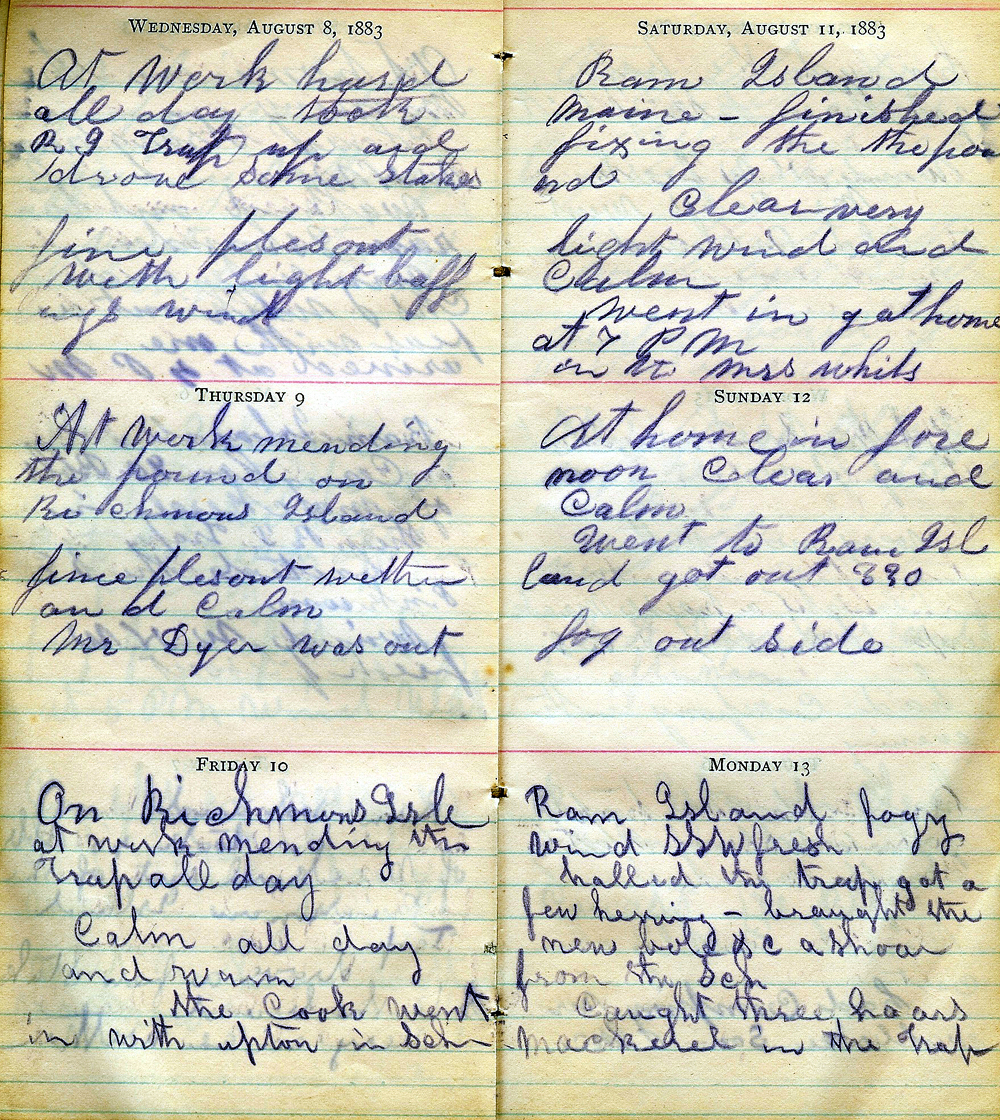 WEDNESDAY, AUGUST 8, 1883
At Work hard
all day - took
R I Trap up and
drove Some Stakes
fine plesont
with light baff
ngs wind
THURSDAY 9
At Work mending
the pound on
Richmons Island
fine plesont wether
and Calm
Mr Dyer was out
FRIDAY 10
On Richmons Isle
at work mending the
Trap all day
Calm all day
and warm
the Cook went
in with upton in Sch
SATURDAY, AUGUST 11, 1883
Ram Island
Maine - finished
fixing the the pou
nd
Clear very
light wind and
Calm
went in got home
at 7 P M
in to Mrs whits
SUNDAY 12
At home in fore
noon Clear and
Calm
Went to Ram Isl
land got out 830
fog out side
MONDAY 13
Ram Island fogy
wind SSW fresh
halled the trap got a
few herring - braught the
new &c a Shoar
from the Sch
Caught three
Mackerel in the Trap